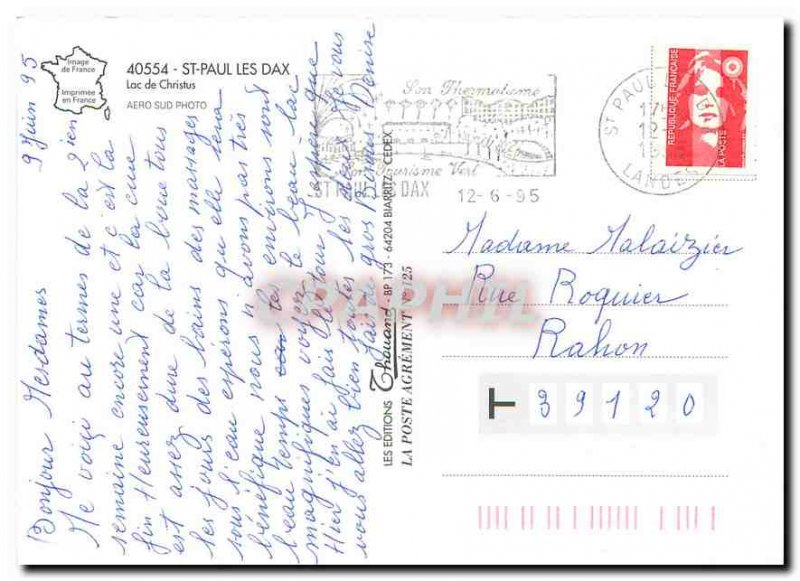 Image
de France
Imprimée
en France
40554 - ST-PAUL LES DAX
Lac de Christus
AERO SUD PHOTO
9 Juin 95
Bonjour Mesdames
Me voiçi au termes de la 2ien
semaine encore une et c'est la
fin Heureusement car la cure
est assez dure de la boue tous
les jours des bains des massages
sous l'eau esperons qu'elle sera
bénéfique nous n'avons pas très
beau temps les environs sont
magnifiques voyez le beau lac
Hier j'en ai fait le tour j'espère que
vous allez bien toutes les deux Je vous
fait de gros bisous Denise
LES EDITIONS Thouand - BP 173 - 64204 BIARRITZ CEDEX
LA POSTE AGRÉMENT N° 125
Son Thermalisme
Son Tourisme Vert
ST PAUL LES DAX
12-6-95
ST PAUL
LANDES
REPUBLIQUE FRANÇAISE
LA POSTE
Madame Malaizier
Rue Roquier
Rahon
39120
CPAPHIL.COM